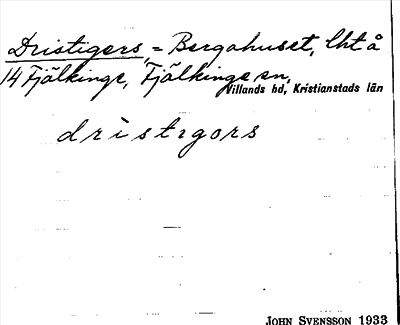 Dristigers, = Bergahuset, lht å
14 Fjälkinge, Fjälkinge sn,
Villands hd, Kristianstads län
dristigors
JOHN SVENSSON 1933